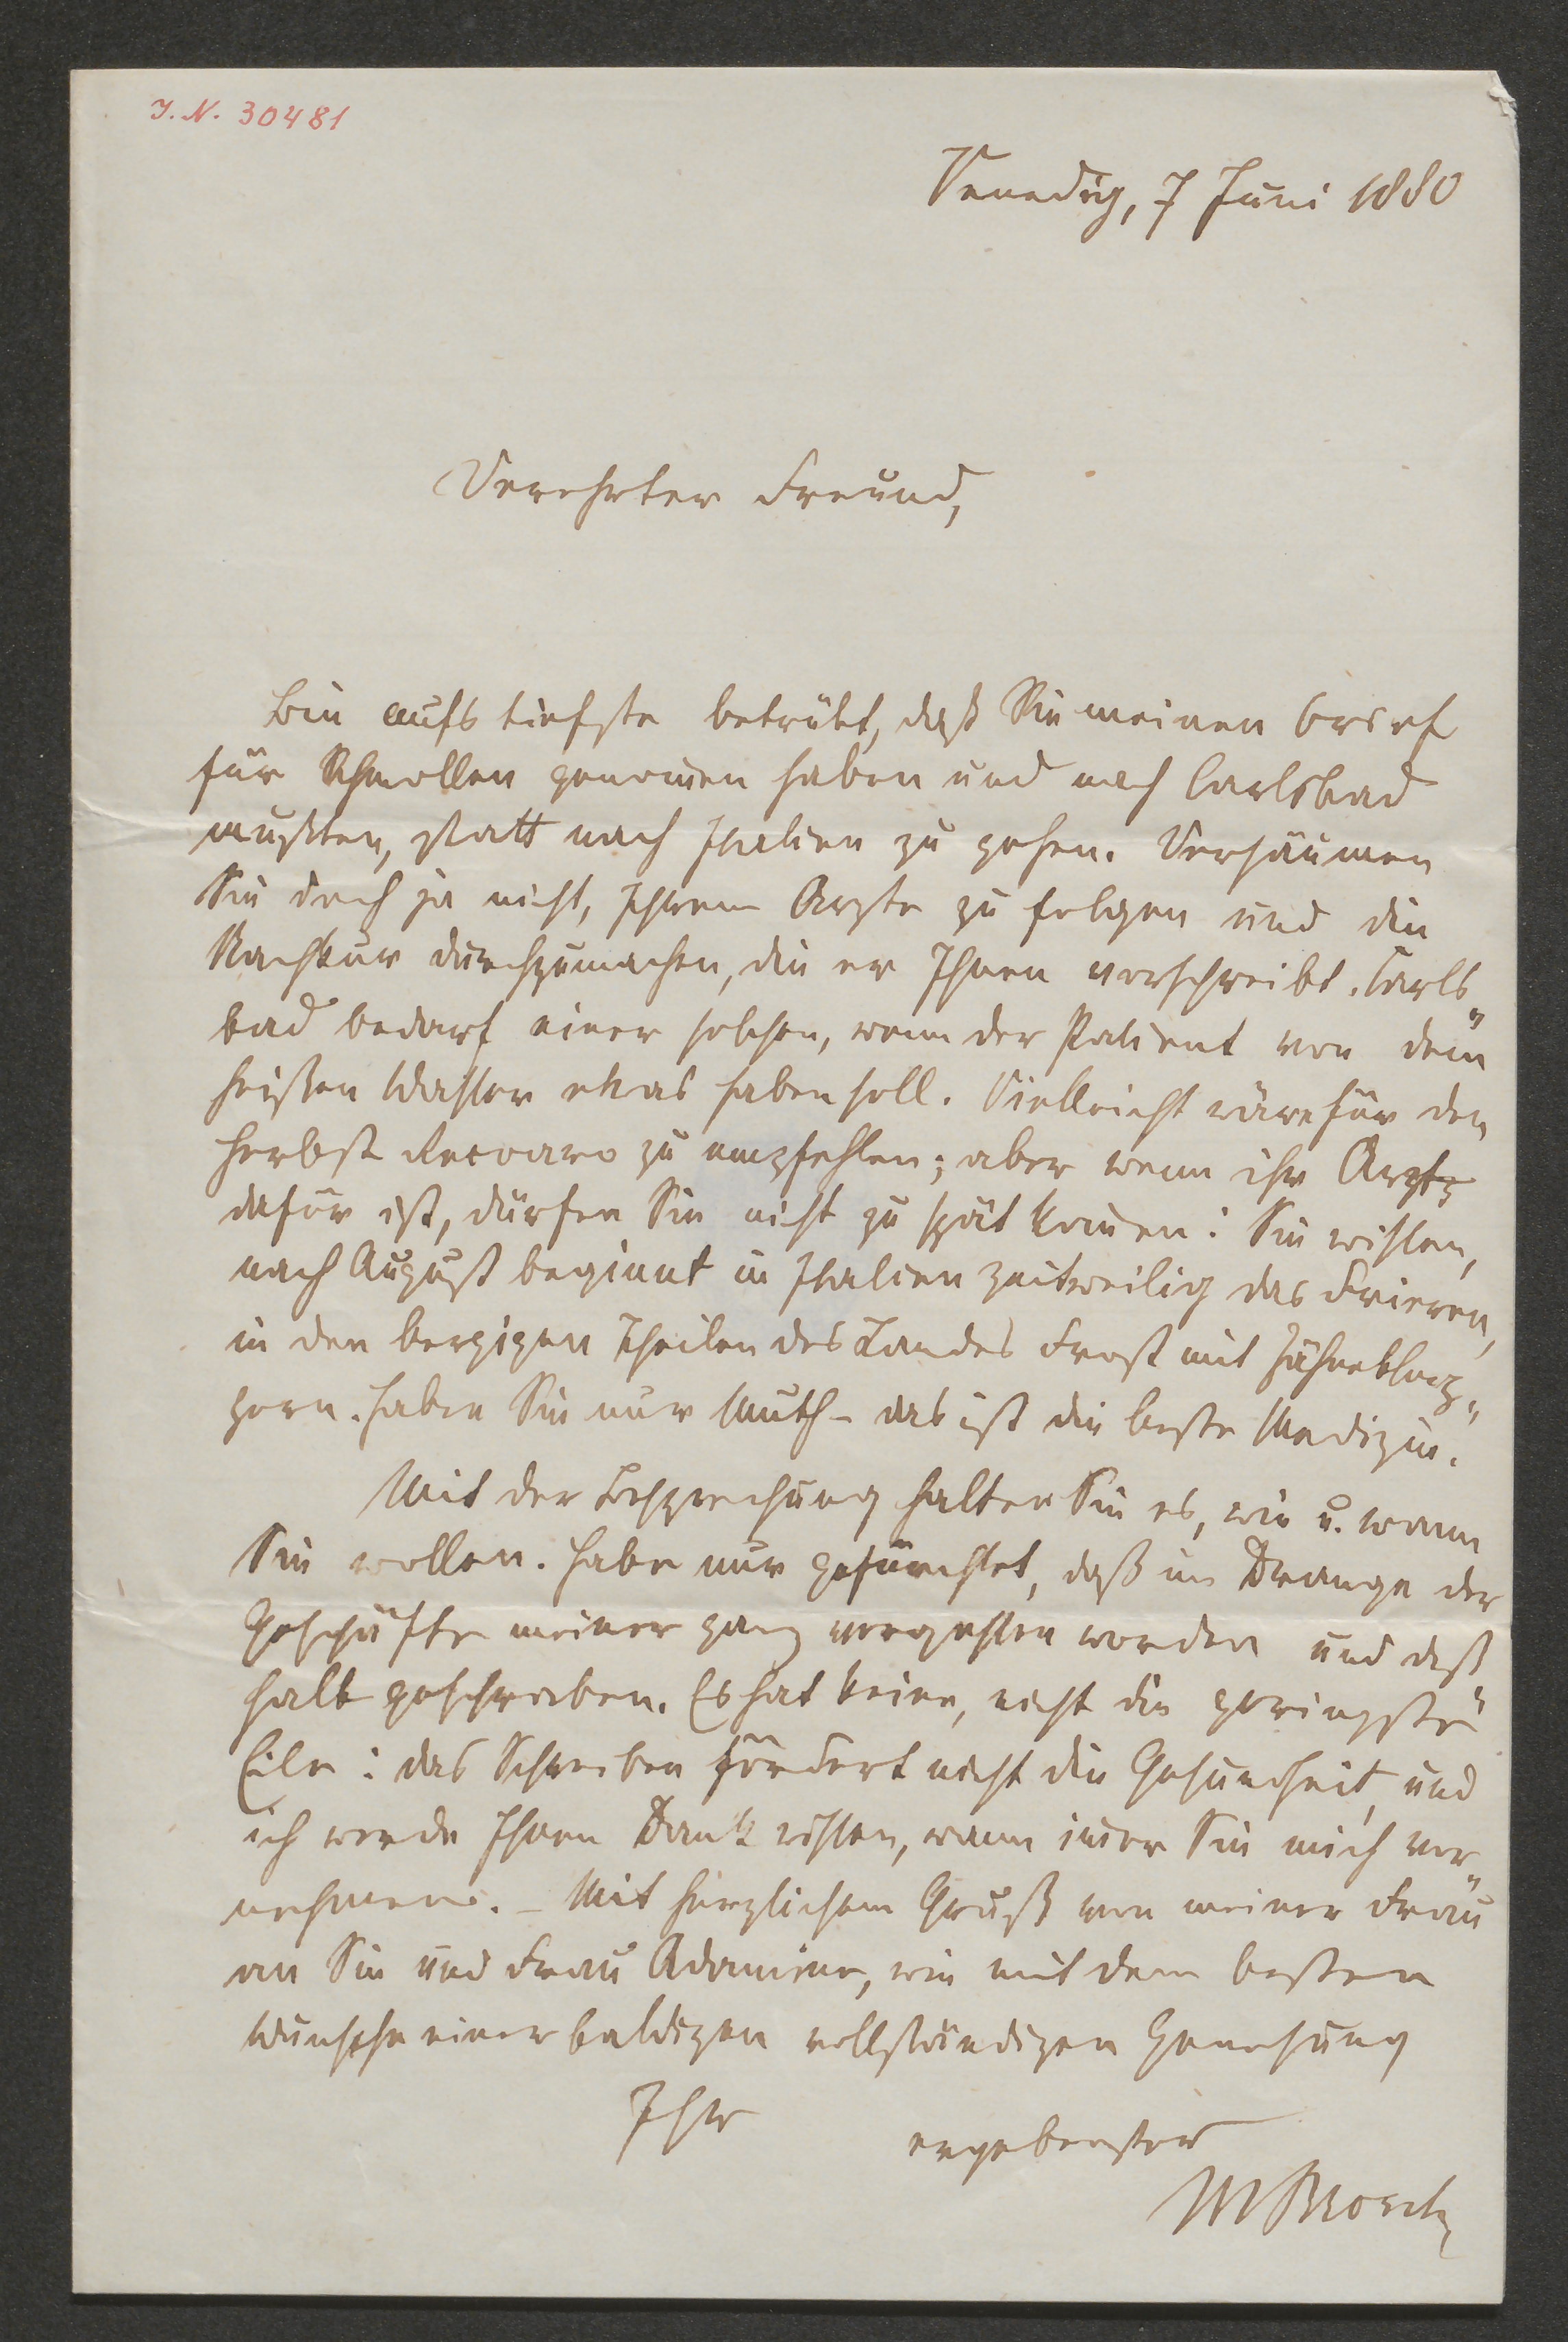 I. N. 30481
Venedig, 7 Juni 1880
Verehrter Freund,
Bin aufs tiefste betrübt, daß Sie meinen Brief
für Schmollen genom̄en haben und nach Carlsbad
mußten, statt nach Italien zu gehen. Versäumen
Sie doch ja nicht, Ihrem Arzte zu folgen und die
Nachkur durchzumachen, die er Ihnen vorschreibt. Carls„
bad bedarf einer solchen, wenn der Patient von dem
heißen Wasser etwas haben soll. Vielleicht wäre für den
Herbst Recoaro zu empfehlen; aber wenn ihr Arzt
dafür ist, dürfen Sie nicht zu spät kom̄en: Sie wissen,
nach August beginnt in Italien zeitweilig das Frieren,
in den bergigen Theilen des Landes Frost mit Zähneklap„
pern. Haben Sie nur Muth – das ist die beste Medizin.
Mit der Besprechung halten Sie es, wie u. wann
Sie wollen. Habe nur gefürchtet, daß im Drange der
Geschäfte meiner ganz vergessen worden und deß„
halb geschrieben. Es hat keine, nicht die geringste
Eile: das Schreiben fördert nicht die Gesundheit, und
ich werde Ihnen Dank wissen, wann im̄er Sie mich vor„
nehmen. – Mit herzlichem Gruß von meiner Frau
an Sie und Frau Adamine, wie mit dem besten
Wunsche einer baldigen vollständigen Genesung
Ihr
ergebenster